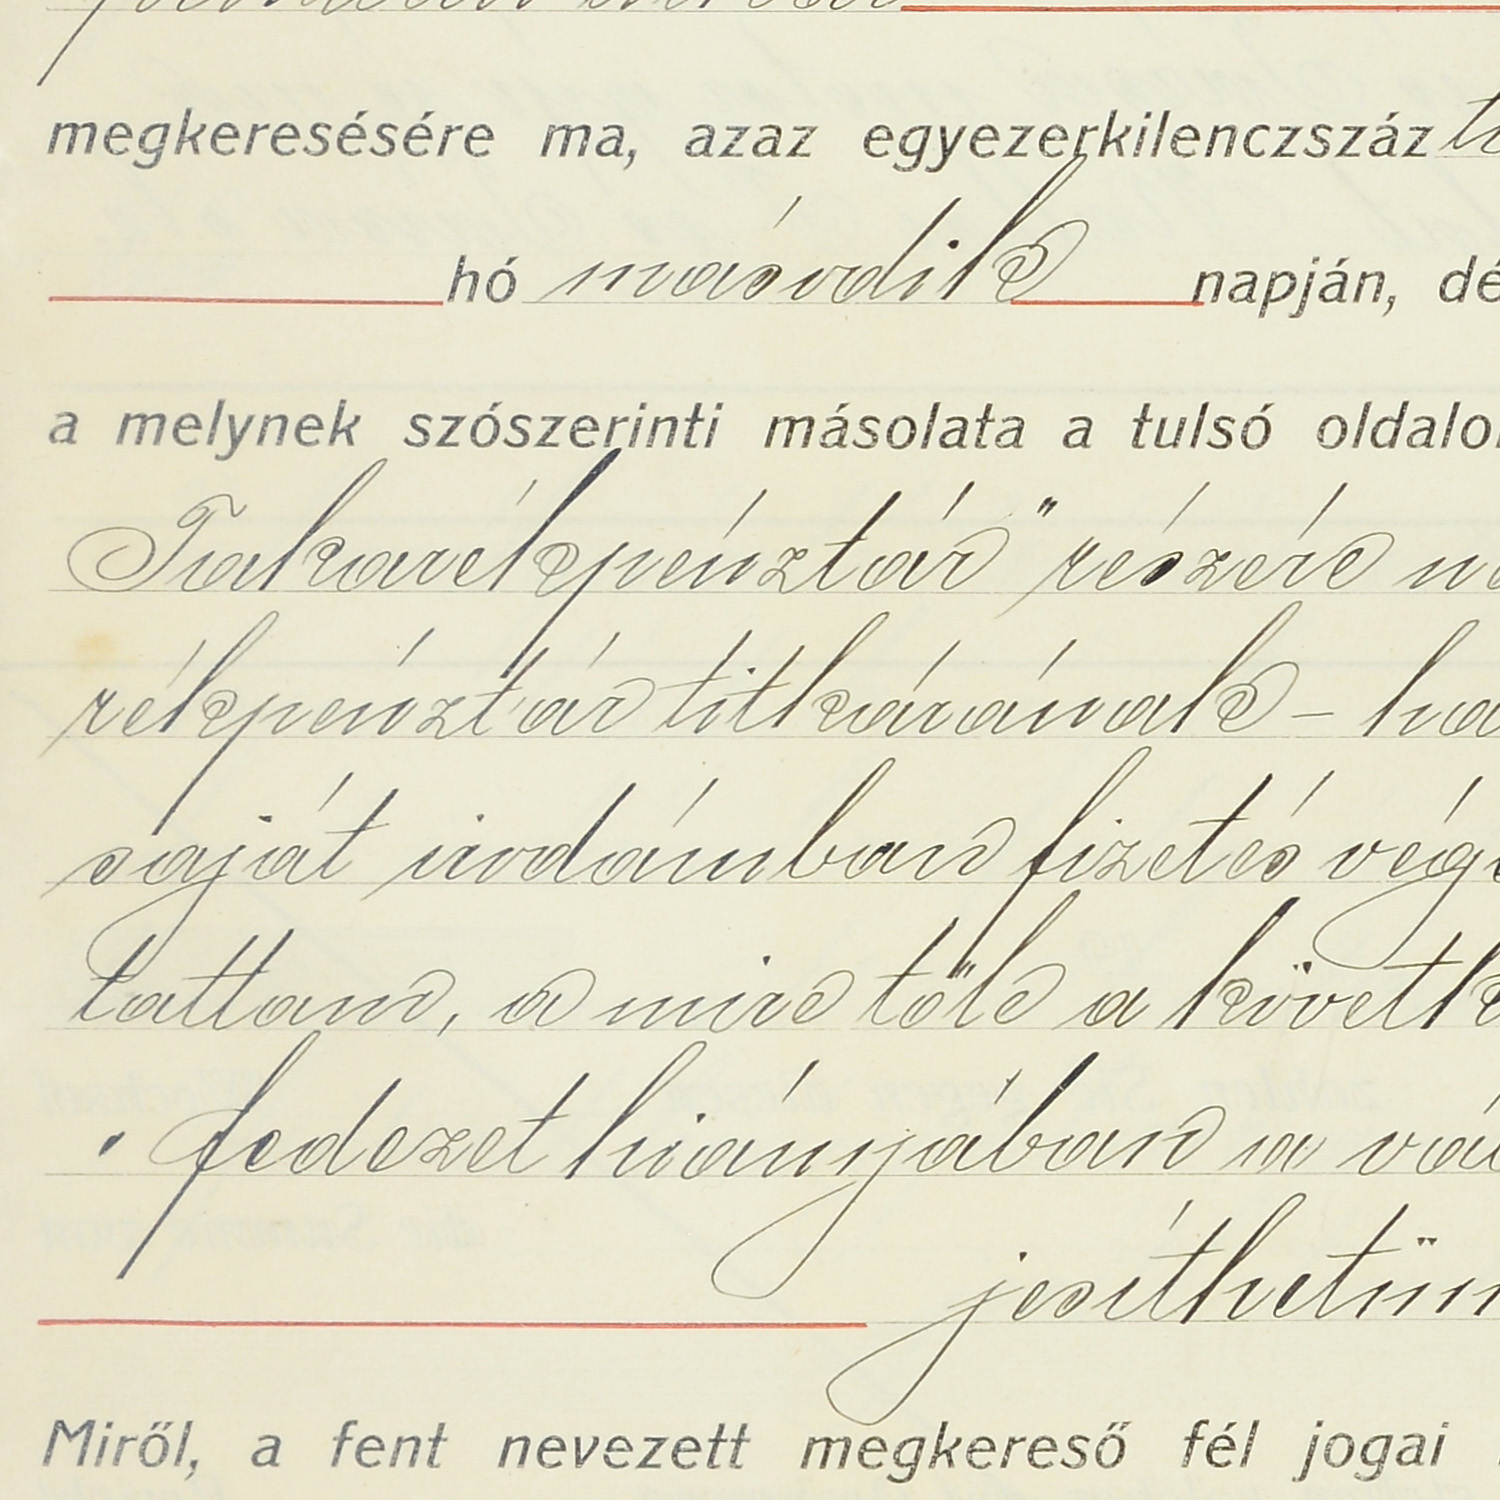 megkeresésére ma, azaz egyezerkilenczszáz
hó második napján, dé
a melynek szószerinti másolata a tulsó oldalon
Takarékpénztár" részére
rékpénztár titkárának – ha
saját irodámban fizetés vége
tattam, a mire tőle a követke
" fedezet hiányjában a vá
jesíthetün
Miről, a fent nevezett megkereső fél jogai